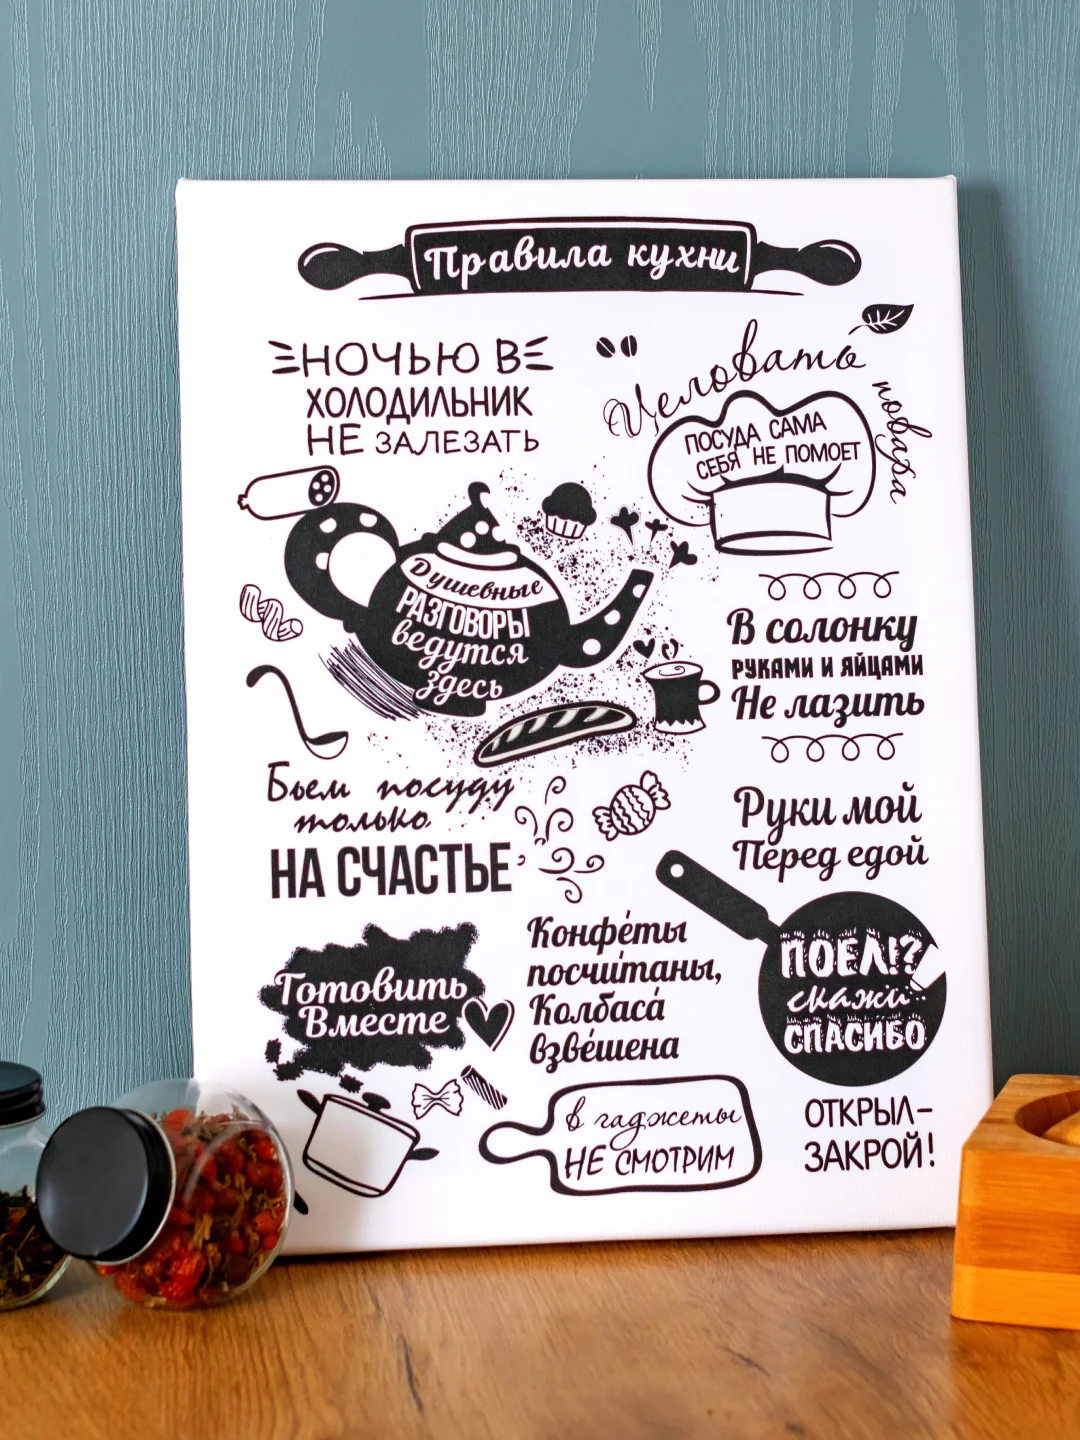 Правила кухни
НОЧЬЮ В
ХОЛОДИЛЬНИК
НЕ ЗАЛЕЗАТЬ
Целовать
повара
ПОСУДА САМА
СЕБЯ НЕ ПОМОЕТ
Душевные
РАЗГОВОРЫ
ведутся
здесь
В солонку
РУКАМИ И ЯЙЦАМИ
Не лазить
Бьем посуду
только
НА СЧАСТЬЕ
Руки мой
Перед едой
Готовить
Вместе
Конфе́ты
посчи́таны,
Колбаса́
взве́шена
ПОЕЛ!?
скажи
СПАСИБО
в гаджеты
НЕ СМОТРИМ
ОТКРЫЛ-
ЗАКРОЙ!